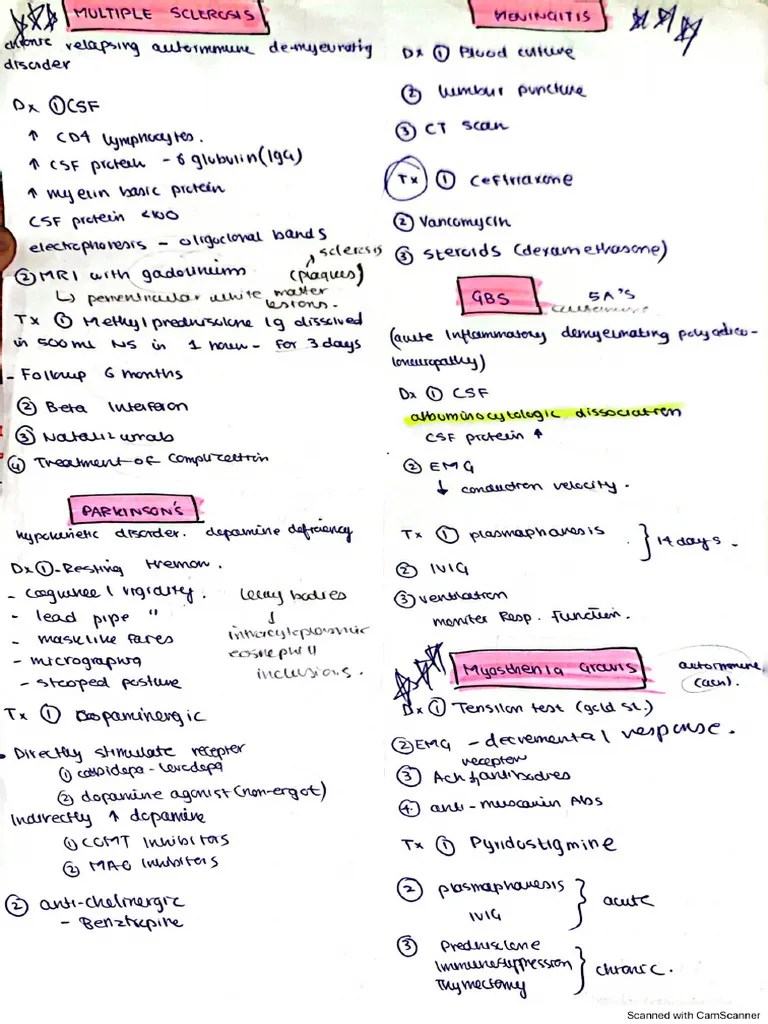 MULTIPLE SCLEROSIS
chronic relapsing autoimmune demyelinating
disorder
Dx ① CSF
↑ CD4 lymphocytes.
↑ CSF protein - γ globulin (IgG)
↑ myelin basic protein
CSF protein <100
electrophoresis - oligoclonal bands
sclerosis
② MRI with gadolinium (plaques)
↳ periventricular white matter
lesions.
Tx ① Methylprednisolone 1g dissolved
in 500ml NS in 1 hour - for 3 days
- Followup 6 months
② Beta Interferon
③ Natalizumab
④ Treatment of complication
PARKINSON'S
hypokinetic disorder. dopamine deficiency
Dx ① - Resting tremor.
- cogwheel rigidity.
- lead pipe "
- masklike faces
- micrographia
- stooped posture
Lewy bodies
↓
intracytoplasmic
eosinophil
inclusions.
Tx ① Dopaminergic
• Directly stimulate receptor
① carbidopa - levodopa
② dopamine agonist (non-ergot)
Indirectly ↑ dopamine
① COMT Inhibitors
② MAO Inhibitors
② anti-cholinergic
- Benztropine
MENINGITIS
Dx ① Blood culture
② lumbur puncture
③ CT scan
Tx ① Ceftriaxone
② Vancomycin
③ Steroids (dexamethasone)
GBS 5A's
(acute Inflammatory demyelinating polyradicu-
loneuropathy)
Dx ① CSF
albuminocytologic dissociation
CSF protein ↑
② EMG
↓ conduction velocity.
Tx ① plasmapharesis } 14 days -
② IVIG
③ ventilation
moniter Resp. function.
Myasthenia Gravis autoimmune
(ach).
Dx ① Tensilon test (gold st.)
② EMG - decremental response.
receptor
③ Ach antibodies
④ anti-muscarin Abs
Tx ① Pyridostigmine
② plasmapharesis } acute
IVIG
③ Prednisolone
Immunosuppression } chronic.
Thymectomy
Scanned with CamScanner